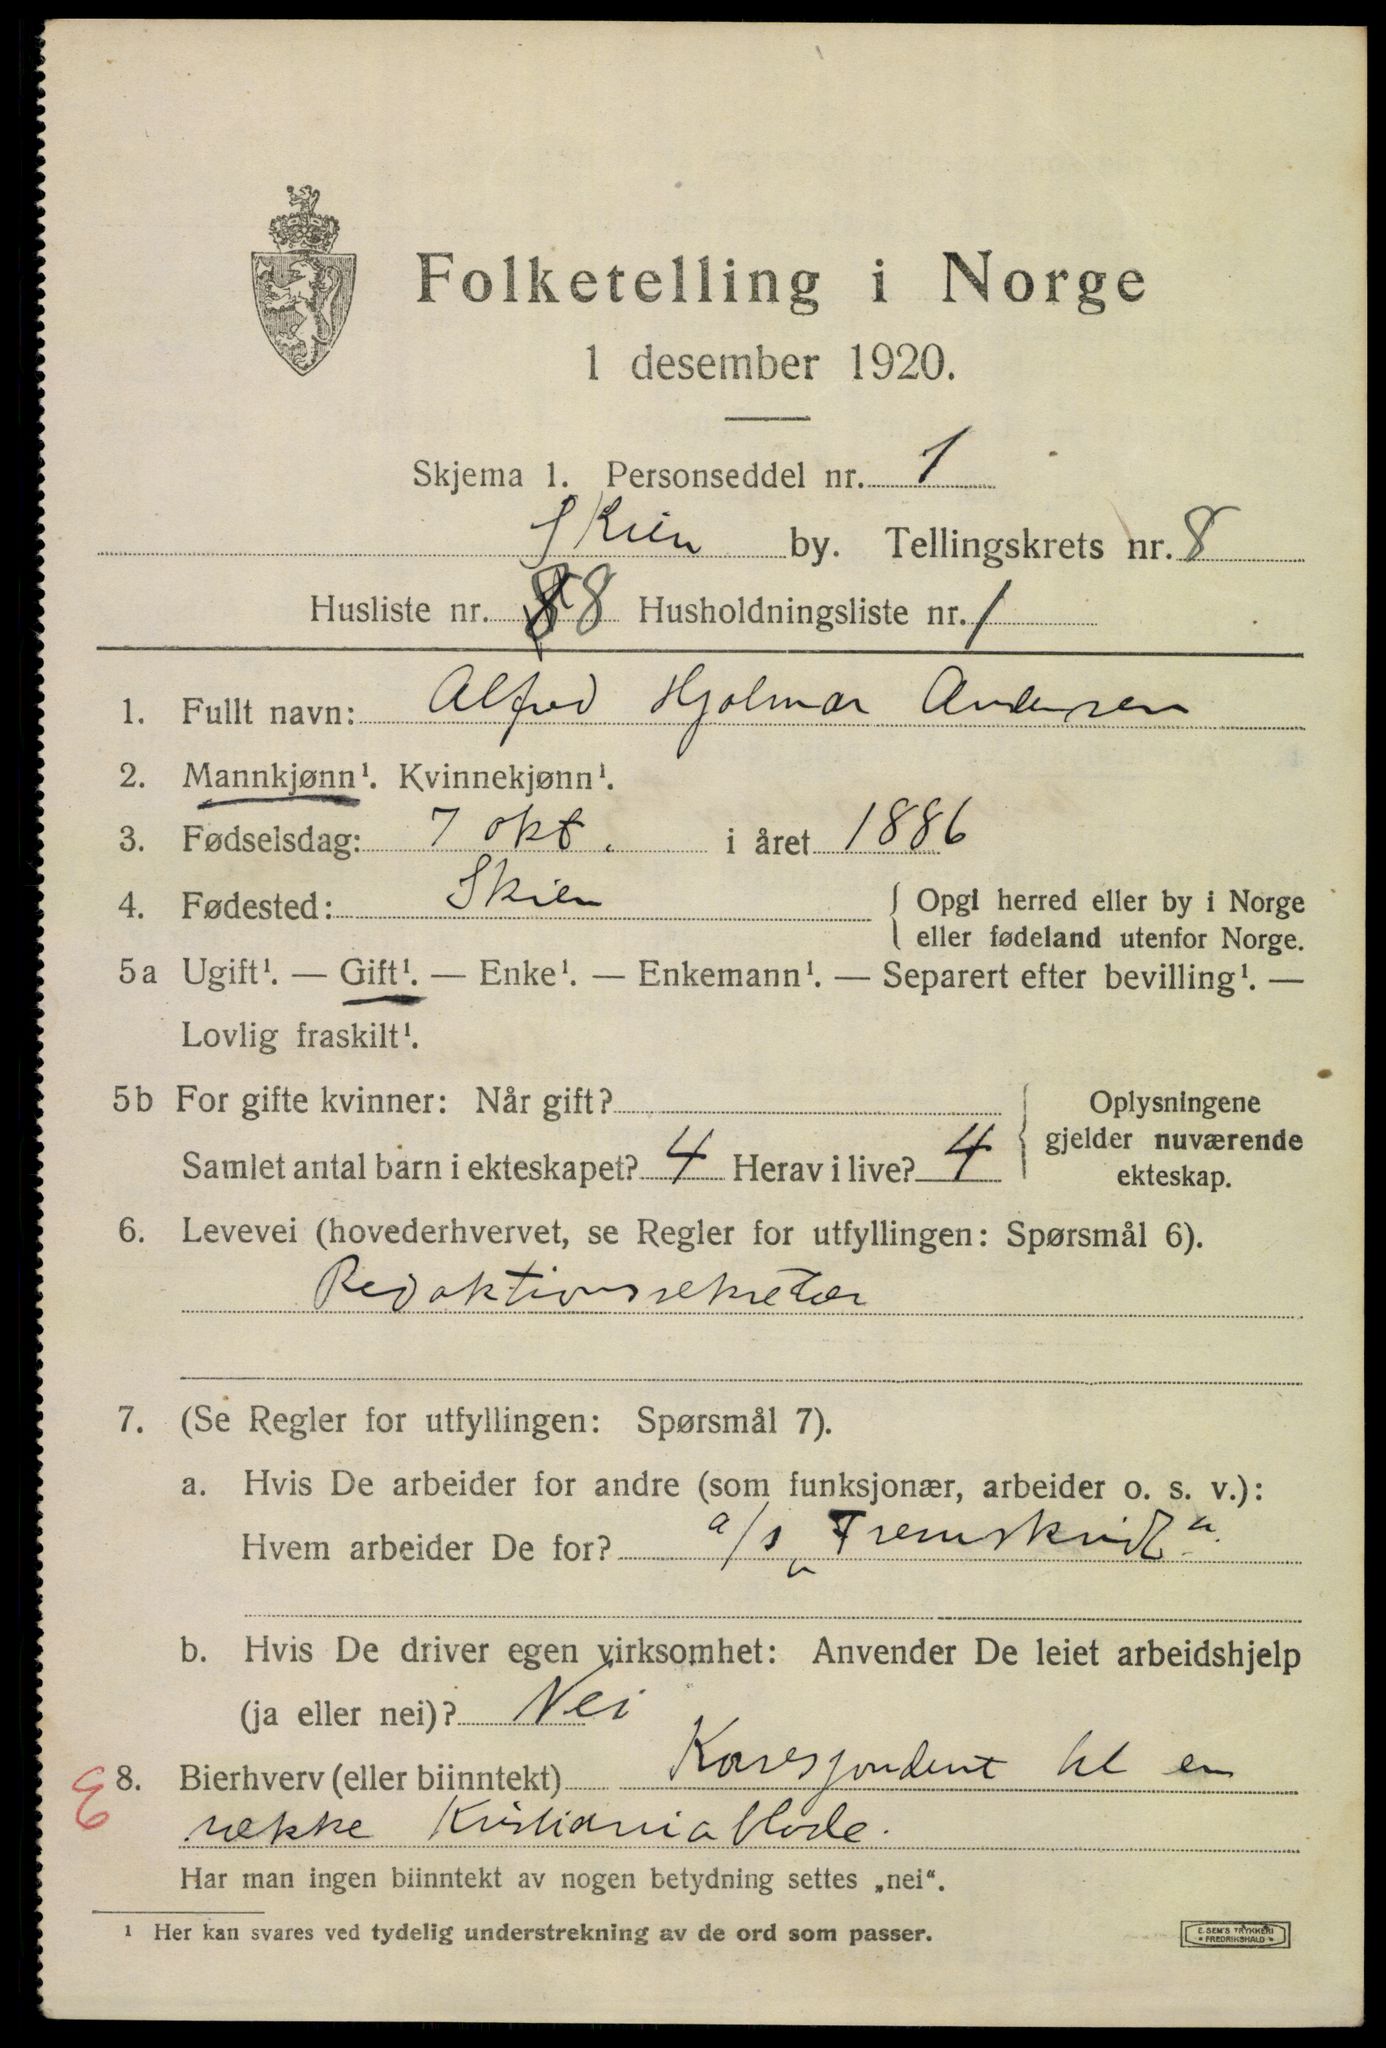 Folketelling i Norge
1 desember 1920.
Skjema 1. Personseddel nr. 1
Skien by. Tellingskrets nr. 8
Husliste nr. 8 Husholdningsliste nr. 1
1. Fullt navn: Alfred Hjalmar Andersen
2. Mannkjønn¹. Kvinnekjønn¹.
3. Fødselsdag: 7 okt. i året 1886
4. Fødested: Skien { Opgi herred eller by i Norge
eller fødeland utenfor Norge.
5a Ugift¹. — Gift¹. — Enke¹. — Enkemann¹. — Separert efter bevilling¹. —
Lovlig fraskilt¹.
5b For gifte kvinner: Når gift? { Oplysningene
gjelder nuværende
ekteskap.
Samlet antal barn i ekteskapet? 4 Herav i live? 4
6. Levevei (hovederhvervet, se Regler for utfyllingen: Spørsmål 6).
Redaktionssekretær
7. (Se Regler for utfyllingen: Spørsmål 7).
a. Hvis De arbeider for andre (som funksjonær, arbeider o. s. v.):
Hvem arbeider De for? a/s „Fremskridt“
b. Hvis De driver egen virksomhet: Anvender De leiet arbeidshjelp
(ja eller nei)? Nei
E 8. Bierhverv (eller biinntekt) Korrespondent til en
række Kristianiablade.
Har man ingen biinntekt av nogen betydning settes „nei“.
¹ Her kan svares ved tydelig understrekning av de ord som passer.
E. SEM'S TRYKKERI
* FREDRIKSHALD *